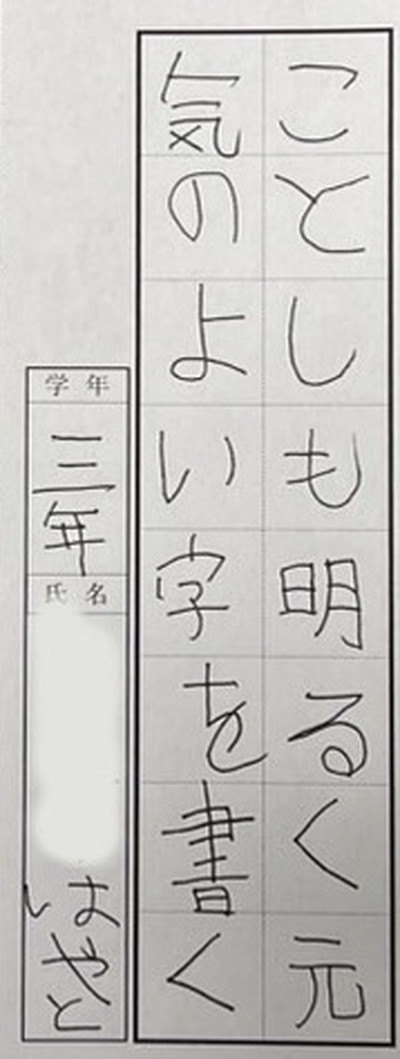 ことしも明るく元
気のよい字を書く
学年
三年
氏名
はやと